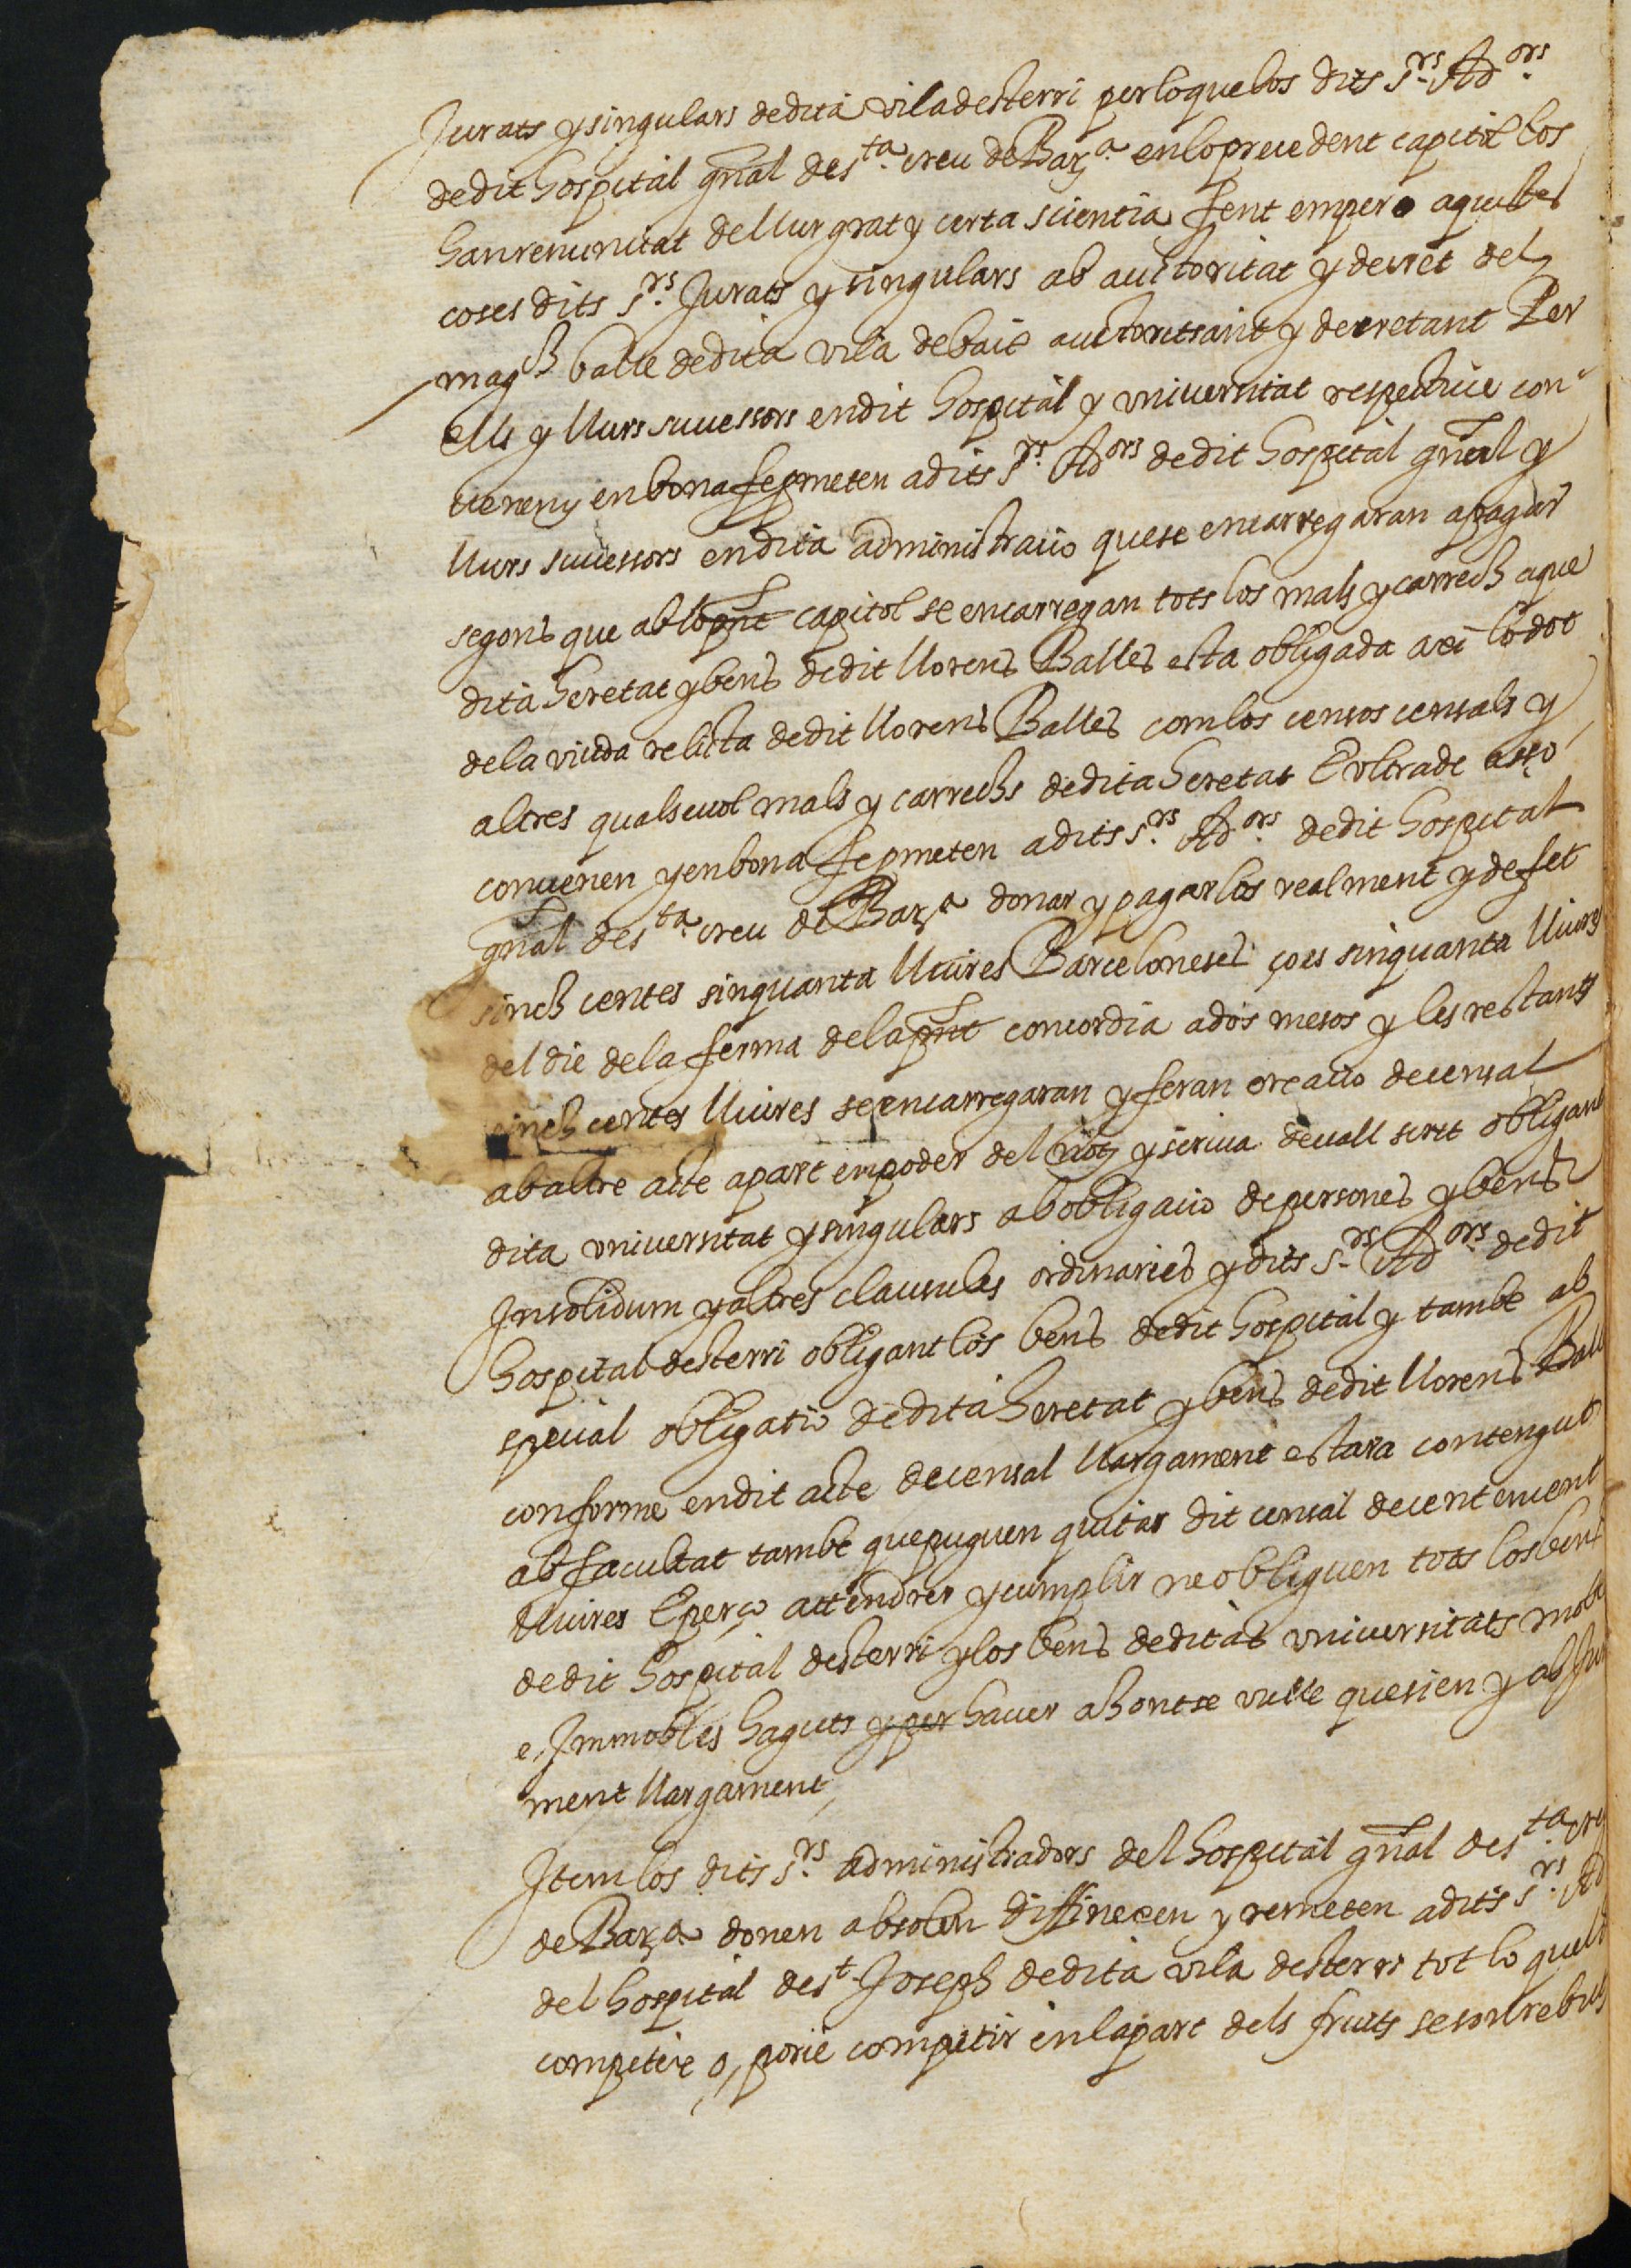 Jurats y singulars de dita vila desterri per lo que los dits s.rs Ad.ors
de dit hospital gñal de s.ta creu de Barª. en lo precedent capitol los
han renunciat de llur grat y certa scientia fent empero aquestes
coses dits s.rs Jurats y singulars ab auctoritat y decret del
mag.ch batlle de dita vila debaix auctoritsant y decretant Per
ells y llurs successors en dit hospital y universitat respective con-
venen y en bona fe pmeten a dits s.rs Ad.ors de dit hospital gñal y
llurs successors en dita administracio que se encarregaran a pagar
segons que ab lo pñt capitol se encarregan tots los mals y carrech a que
dita heretat y bens de dit llorens Balles esta obligada axi lo dot
de la viuda relicta de dit llorens Balles com los censos censals y
altres qualsevol mals y carrechs de dita heretat E ultra de asso
convenen y en bona fe pmeten a dits s.rs Ad.ors de dit hospital
gñal de s.ta creu de Barª donar y pagar los realment y de fet
sinch centes sinquanta lliures Barceloneses ço es sinquanta lliures
del die de la ferma de la pñt concordia a dos mesos y les restants
sinch centes lliures se encarregaran y feran creacio de censal
ab altre acte apart en poder del not y scriva devall scrit obligant
dita universitat y singulars ab obligacio de persones y bens
Insolidum y altres clausules ordinaries y dits s.rs Ad.ors de dit
hospital desterri obligant los bens de dit hospital y tambe ab
special obligatio de dita heretat y bens de dit llorens Ball
conforme en dit acte de censal llargament estara contengut
ab facultat tambe que puguen quitar dit censal de cent en cent
lliures E per ço attendrer y cumplir ne obliguen tots los bens
de dit hospital desterri y los bens de ditas universitats mobl
e, Immobles haguts y per haver ahont se vulle que sien y ab Jur
ment llargament,
Item los dits s.rs administradors del hospital gñal de s.ta cre
de Barª donen absolen diffinexen y remeten a dits s.rs Ad
del hospital de s.t Joseph de dita vila desterri tot lo quels
competeix o, porie competir en la part dels fruits se son rebuts